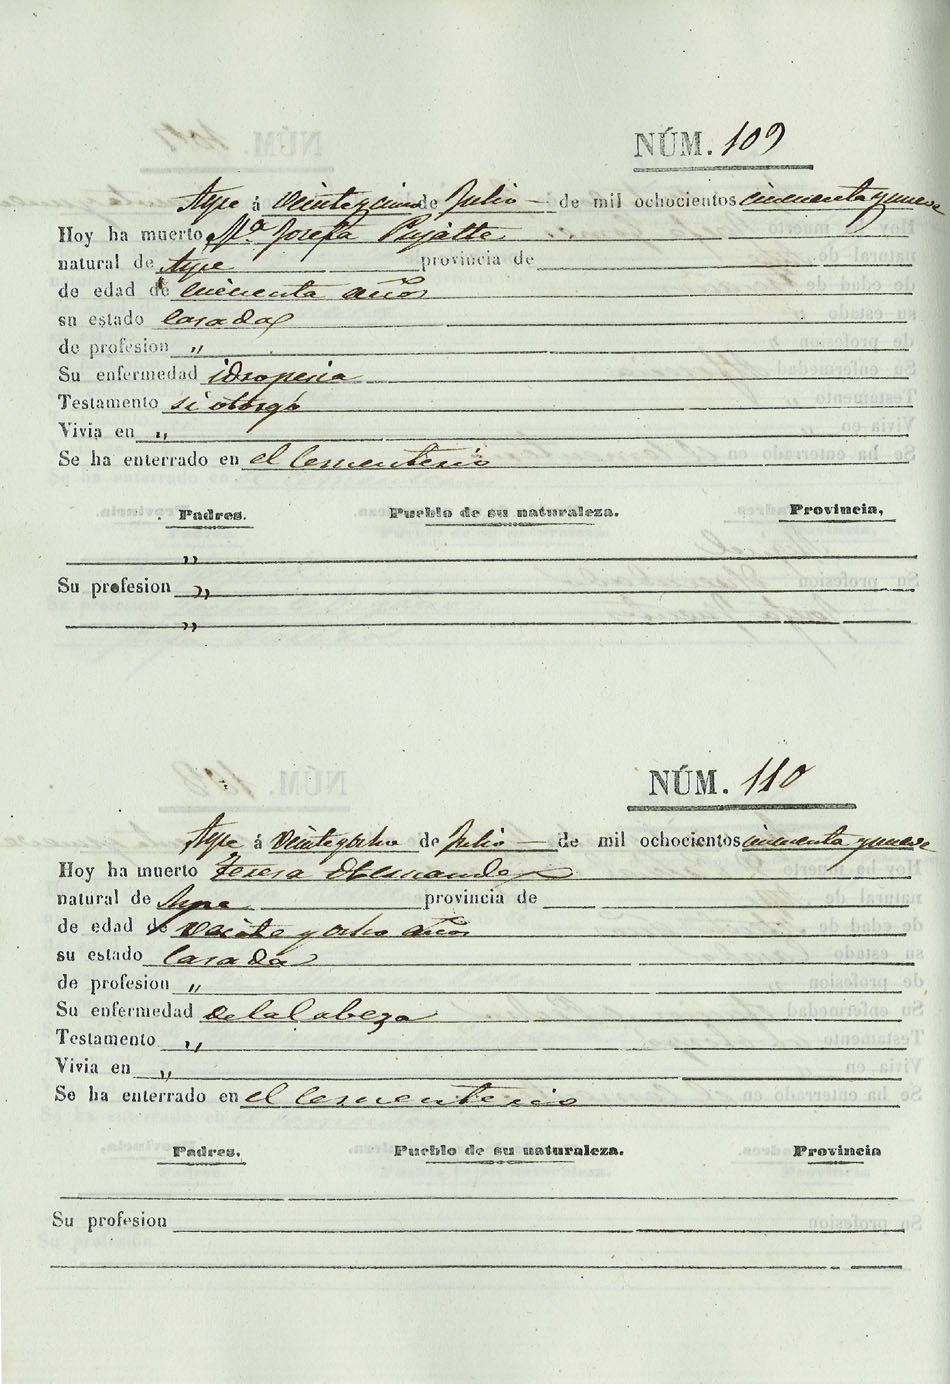 NÚM. 109
Aspe á veinteycinco de Julio — de mil ochocientos cincuenta y nueve
Hoy ha muerto Mª Josefa Pujalte
natural de Aspe provincia de
de edad de cincuenta años
su estado Casada
de profesion "
Su enfermedad idropecia
Testamento si otorgó
Vivia en "
Se ha enterrado en el Cementerio
Padres. Pueblo de su naturaleza. Provincia,
"
Su profesion "
"
NÚM. 110
Aspe á veinteyocho de Julio — de mil ochocientos cincuenta y nueve
Hoy ha muerto Teresa
natural de Aspe provincia de
de edad de veinte y ocho años
su estado Casada
de profesion "
Su enfermedad de la Cabeza
Testamento "
Vivia en "
Se ha enterrado en el Cementerio
Padres. Pueblo de su naturaleza. Provincia
Su profesion